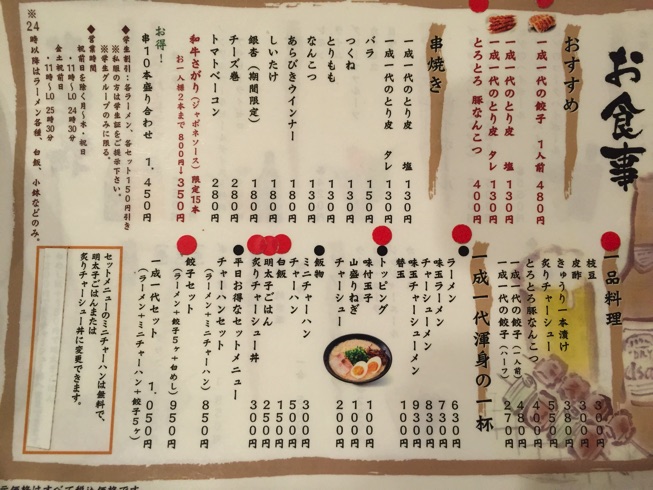 お食事
おすすめ
一成一代の餃子 1人前 480円
一成一代のとり皮 塩 130円
一成一代のとり皮 タレ 130円
とろとろ 豚なんこつ 400円
串焼き
一成一代のとり皮 塩 130円
一成一代のとり皮 タレ 130円
バラ 150円
つくね 180円
とりもも 130円
なんこつ 130円
あらびきウインナー 180円
しいたけ 180円
銀杏(期間限定) 180円
チーズ巻 280円
トマトベーコン 280円
和牛さがり(ジャポネソース)限定15本
お一人様2本まで 800円→350円
お得!
串10本盛り合わせ 1,450円
◆学生割引:各ラーメン、各セット150円引き
※私服の方は学生証をご提示下さい。
※学生グループのみに限る。
◆営業時間
祝前日を除く月〜木・祝日
・11時〜LO 24時30分
金土祝前日
・11時〜LO 25時30分
※24時以降はラーメン各種、白飯、小鉢などのみ。
一品料理
枝豆 300円
皮酢 380円
きゅうり一本漬け
炙りチャーシュー
とろとろ豚なんこつ 400円
一成一代の餃子(一人前) 480円
一成一代の餃子(ハーフ) 270円
一成一代渾身の一杯
ラーメン 630円
味玉ラーメン 730円
チャーシューメン 830円
味玉チャーシューメン 930円
替玉 100円
●トッピング
味付玉子 100円
山盛りねぎ 100円
チャーシュー 200円
●飯物
ミニチャーハン 300円
チャーハン 500円
白飯 150円
明太子ごはん 250円
炙りチャーシュー丼 300円
●平日お得なセットメニュー
チャーハンセット
(ラーメン+ミニチャーハン) 850円
餃子セット
(ラーメン+餃子5ヶ+白めし) 950円
一成一代セット
(ラーメン+ミニチャーハン+餃子5ヶ) 1,050円
セットメニューのミニチャーハンは無料で、
明太子ごはんまたは
炙りチャーシュー丼に変更できます。